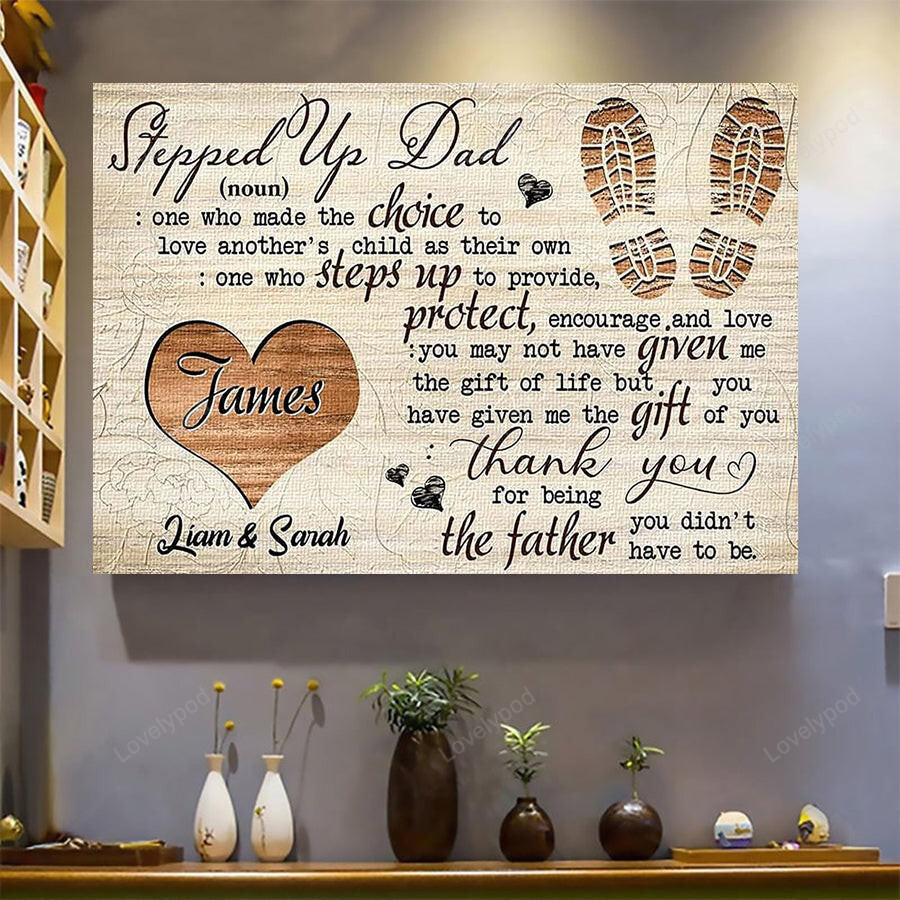 Stepped Up Dad
(noun)
: one who made the choice to
love another's child as their own
: one who steps up to provide,
protect, encourage and love
:you may not have given me
the gift of life but you
have given me the gift of you
: thank you
for being
the father you didn't
have to be.
James
Liam & Sarah
Lovelypod
Lovelypod
Lovelypod
Lovelypod